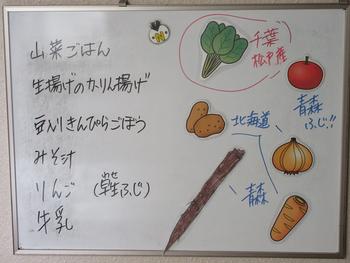 山菜ごはん
生揚げのかりん揚げ
豆入りきんぴらごぼう
みそ汁
りんご
牛乳
千葉
松戸産
青森
ふじ!!
北海道
青森